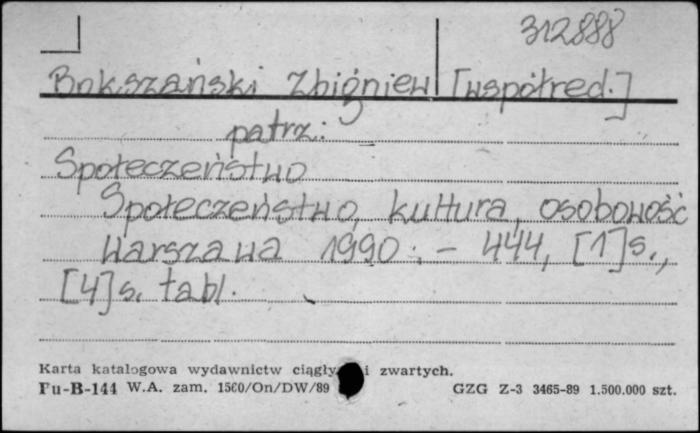 312888
Bokszański Zbigniew [współred.]
patrz:
Społeczeństwo
Społeczeństwo, kultura, osobowość
Warszawa 1990. - 444, [1]s.,
[4]s. tabl.
Karta katalogowa wydawnictw ciągły i zwartych.
Pu-B-144 W.A. zam. 1560/On/DW/89 GZG Z-3 3465-89 1.500.000 szt.